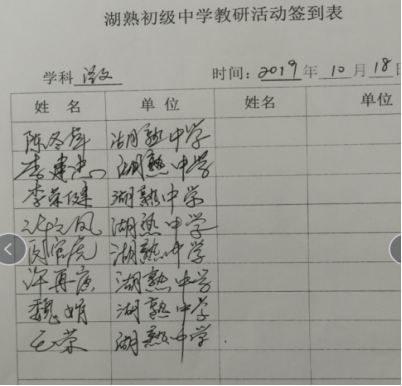 湖熟初级中学教研活动签到表
学科 语文 时间：2019年10月18日
姓名 单位 姓名 单位
湖熟中学
李建忠 湖熟中学
李荣健 湖熟中学
湖熟中学
湖熟中学
许再 湖熟中学
魏娟 湖熟中学
王荣 湖熟中学